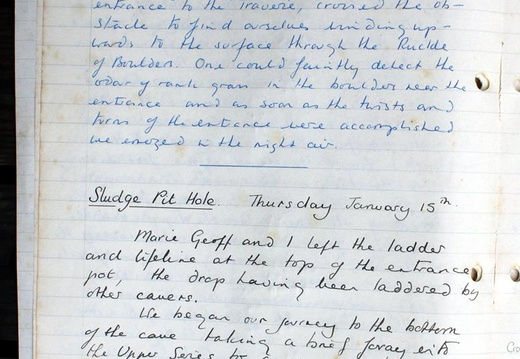 entrance to the Traverse, crossed the ob-
stacle to find ourselves winding up-
wards to the surface through the Ruckle
of Boulders. One could faintly detect the
odour of rank grass in the boulders near the
entrance and as soon as the twists and
turns of the entrance were accomplished
we emerged in the night air.
Sludge Pit Hole Thursday January 15th.
Marie Geoff and I left the ladder
and lifeline at the top of the entrance
pot, the drop having been laddered by
other cavers.
We began our journey to the bottom
of the cave taking a brief foray into
the Upper Series